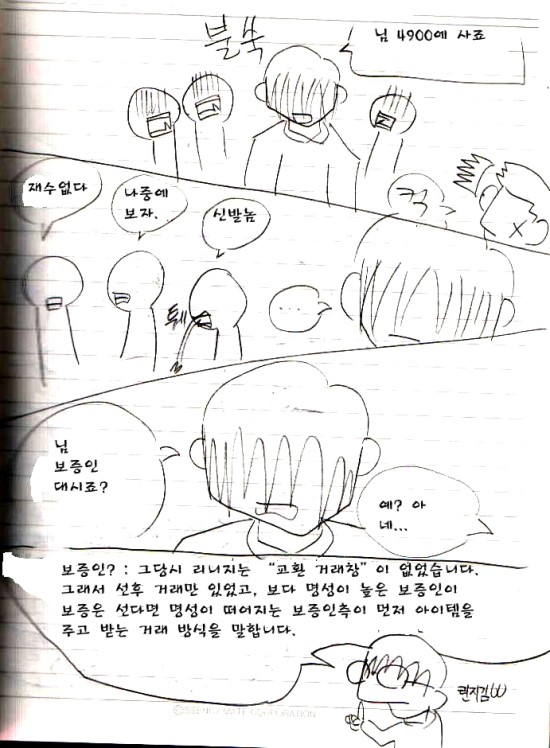 불쑥
님 4900에 사죠
재수없다
나중에
보자.
신발놈
퉤
....
님
보증인
대시죠?
예? 아
네...
보증인? : 그당시 리니지는 "교환 거래창" 이 없었습니다.
그래서 선후 거래만 있었고, 보다 명성이 높은 보증인이
보증은 선다면 명성이 떠어지는 보증인측이 먼저 아이템을
주고 받는 거래 방식을 말합니다.